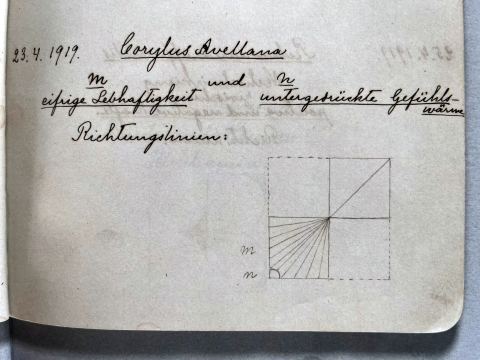 23.4.1919. Corylus Avellana
m und n
eifrige Lebhaftigkeit untergedrückte Gefühls-
wärme
Richtungslinien:
m
n